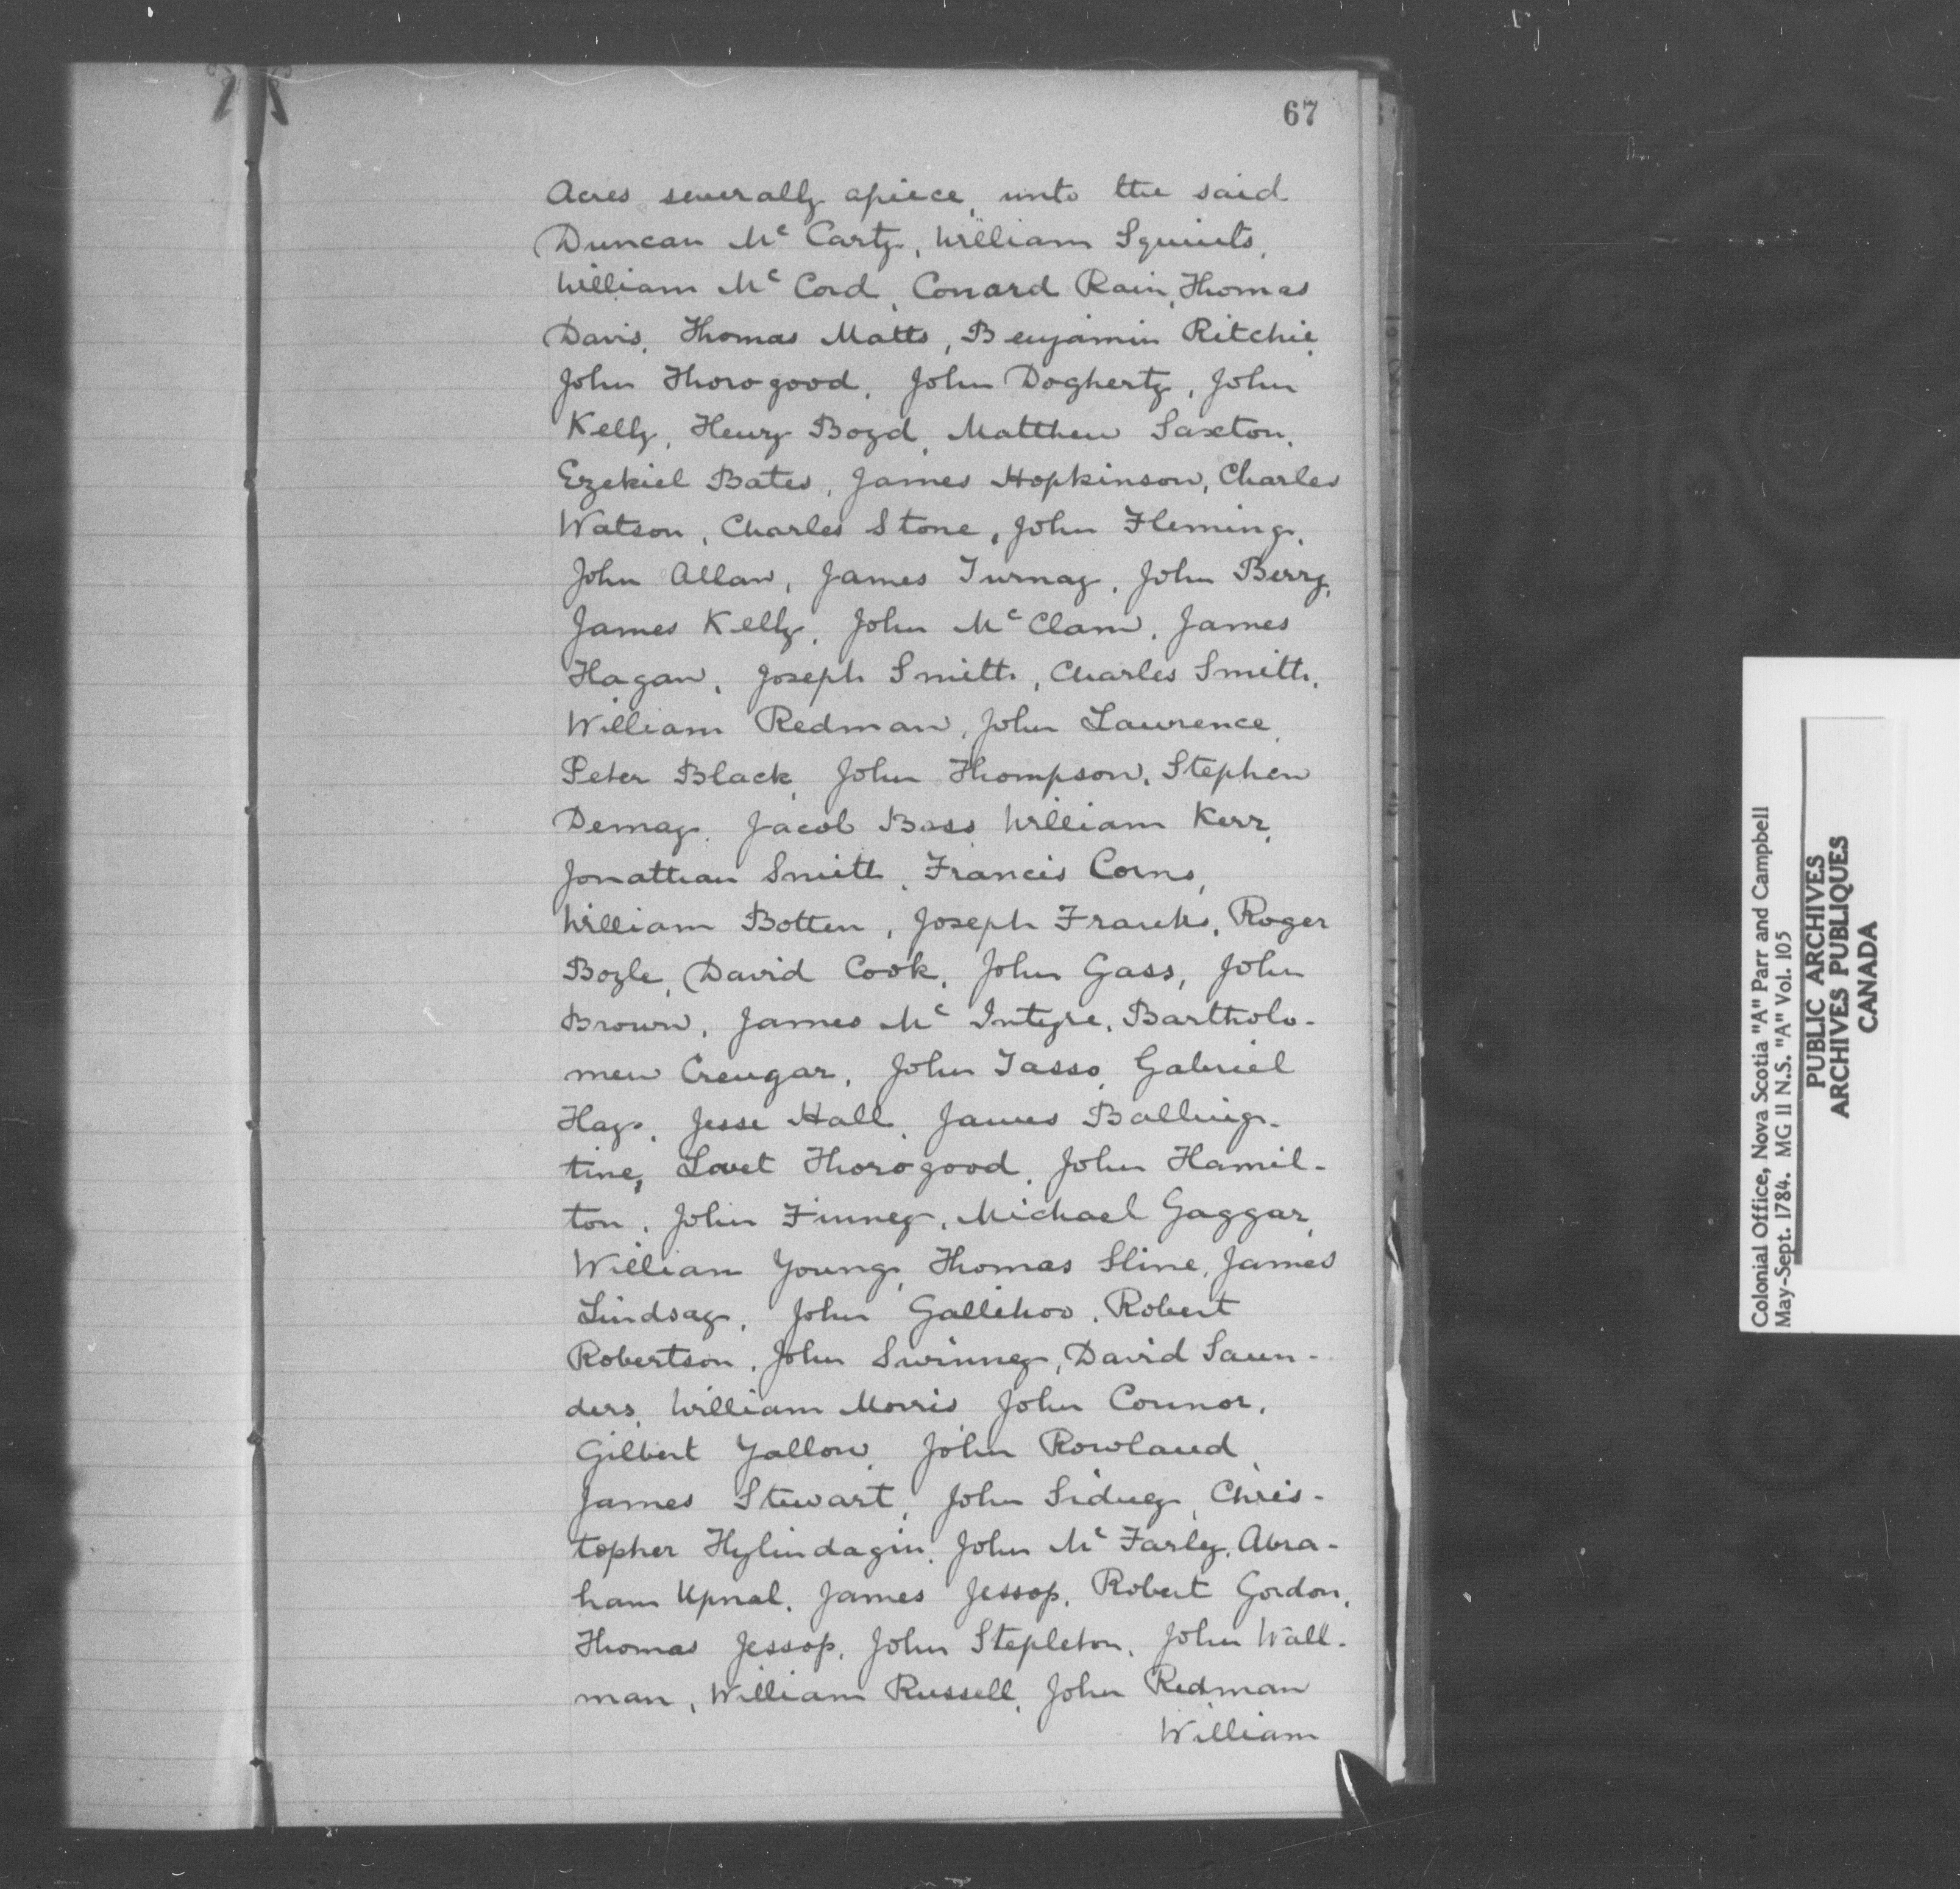 67
Acres severally apiece, unto the said
Duncan Mc Carty, William Squints,
William Mc Cord, Conard Rain, Thomas
Davis, Thomas Matts, Benjamin Ritchie,
John Thorogood, John Dogherty, John
Kelly, Henry Boyd, Matthew Saxton,
Ezekiel Bates, James Hopkinson, Charles
Watson, Charles Stone, John Fleming,
John Allan, James Turnay, John Berry,
James Kelly, John Mc Clam, James
Hagan, Joseph Smith, Charles Smith,
William Redman, John Lawrence,
Peter Black, John Thompson, Stephen
Demay, Jacob Bass, William Kerr,
Jonathan Smith, Francis Corns,
William Botten, Joseph Franks, Roger
Boyle, David Cook, John Gass, John
Brown, James Mc Intyre, Bartholo-
mew Creugar, John Tasso, Gabriel
Hay, Jesse Hall, James Balling-
tine, Lovet Thorogood, John Hamil-
ton, John Finney, Michael Gaggar,
William Young, Thomas Sline, James
Lindsay, John Gallihoo, Robert
Robertson, John Swinney, David Saun-
ders, William Morris, John Connor,
Gilbert Yallow, John Rowland,
James Stewart, John Sidney, Chris-
topher Hylindagin, John Mc Farly, Abra-
ham Upnal, James Jessop, Robert Gordon,
Thomas Jessop, John Stepleton, John Wall-
man, William Russell, John Redman
William
Colonial Office, Nova Scotia "A" Parr and Campbell
May-Sept. 1784. MG 11 N.S. "A" Vol. 105
PUBLIC ARCHIVES
ARCHIVES PUBLIQUES
CANADA